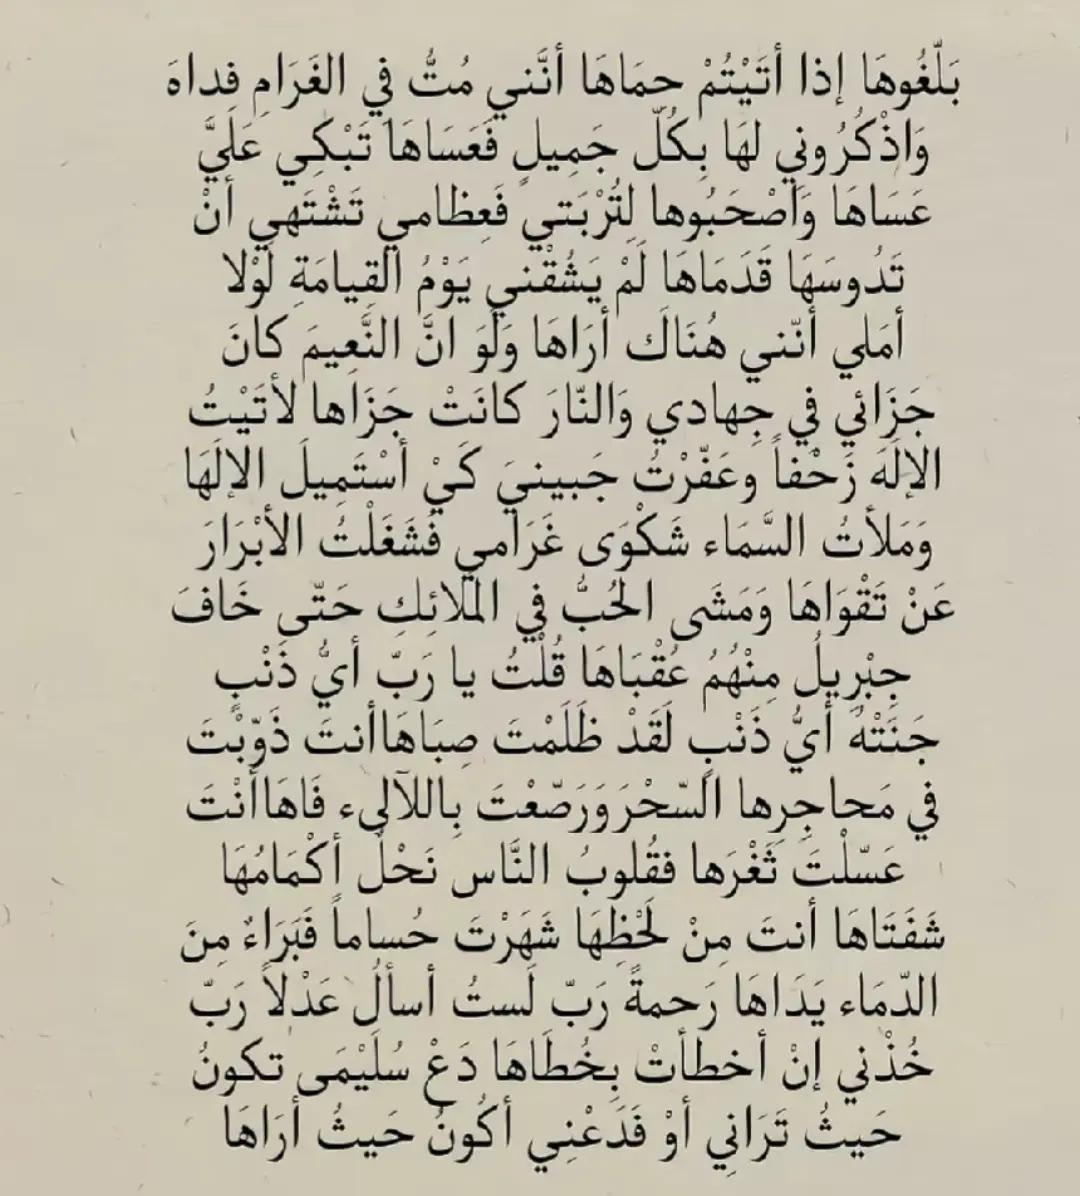 بَلّغُوهَا إذا أتَيْتُمْ حمَاهَا أنَّني مُتُّ في الغَرَامِ فداهَ
وَاذْكُرُوني لهَا بِكُلّ جَمِيلٍ فَعَسَاهَا تَبْكِي عَلَيَّ
عَسَاهَا وَاصْحَبُوها لِتُرْبَتي فَعِظامي تَشْتَهي أنْ
تَدُوسَهَا قَدَمَاهَا لَمْ يَشُقْني يَوْمُ القِيامَةِ لَوْلا
أمَلي أنّني هُنَاكَ أرَاهَا وَلَوَ انَّ النَّعِيمَ كانَ
جَزَائي في جِهادي وَالنّارَ كانَتْ جَزَاها لأتَيْتُ
الإلَهَ زَحْفاً وعَفّرْتُ جَبينيَ كَيْ أسْتَمِيلَ الإلَهَا
وَمَلأتُ السَّمَاء شَكْوَى غَرَامي فَشَغَلْتُ الأبْرَارَ
عَنْ تَقْوَاهَا وَمَشَى الحُبُّ في المَلائِكِ حَتّى خَافَ
جِبْرِيلُ مِنْهُمُ عُقْبَاهَا قُلْتُ يا رَبّ أيُّ ذَنْبٍ
جَنَتْهُ أيُّ ذَنْبٍ لَقَدْ ظَلَمْتَ صِبَاهَاأنتَ ذَوّبْتَ
في مَحاجِرِها السّحْرَوَرَصّعْتَ بِاللآلىء فَاهَاأنْتَ
عَسّلْتَ ثَغْرَها فقُلوبُ النَّاس نَحْلٌ أكْمَامُهَا
شَفَتَاهَا أنتَ مِنْ لَحْظِهَا شَهَرْتَ حُساماً فَبَرَاءٌ مِنَ
الدّمَاء يَدَاهَا رَحمةً رَبّ لَستُ أسألُ عَدْلاً رَبّ
خُذْني إنْ أخطأتْ بِخُطَاهَا دَعْ سُلَيْمَى تكونُ
حَيثُ تَرَاني أوْ فَدَعْنِي أكُونُ حَيثُ أرَاهَا